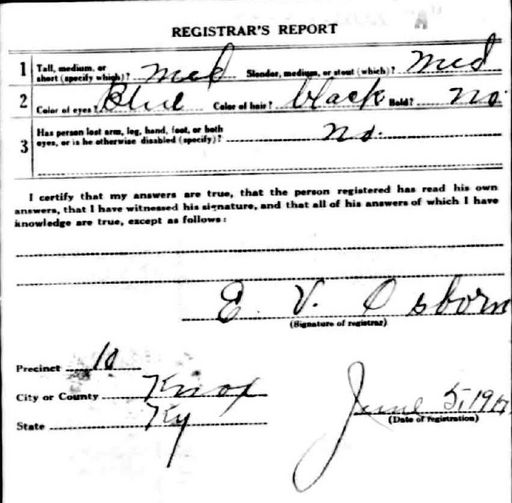 "A"
REGISTRAR'S REPORT
1 Tall, medium, or short (specify which)? med Slender, medium, or stout (which)? med
2 Color of eyes? Blue Color of hair? black Bald? no
3 Has person lost arm, leg, hand, foot, or both eyes, or is he otherwise disabled (specify)? no.
I certify that my answers are true, that the person registered has read his own
answers, that I have witnessed his signature, and that all of his answers of which I have
knowledge are true, except as follows:
E. V. Osborn
(Signature of registrar)
Precinct 10
City or County Knox
State Ky
June 5, 1917
(Date of registration)